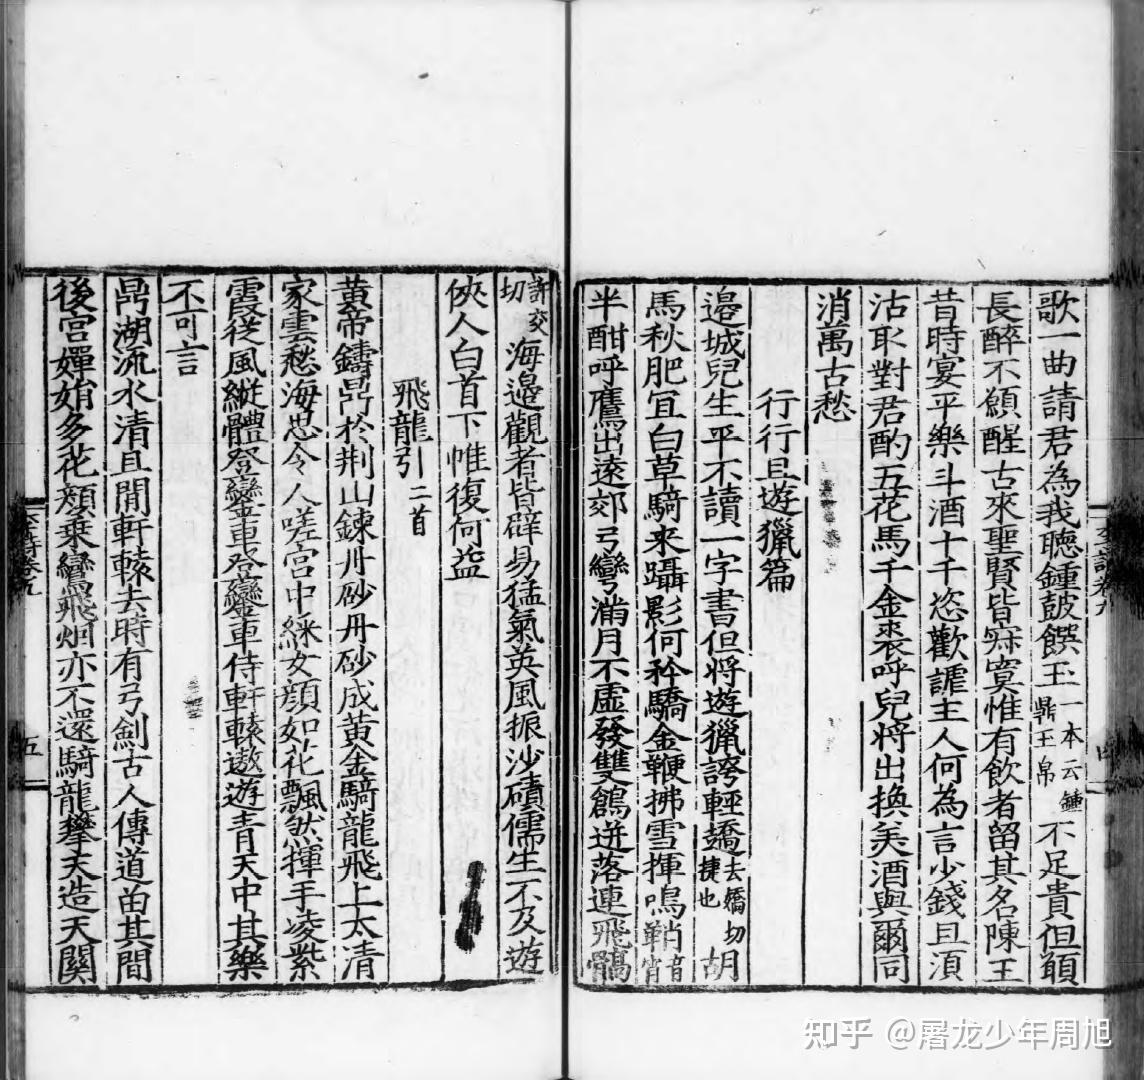 歌一曲請君為我聽鍾鼓饌玉一本云鍾鼎玉帛不足貴但願
長醉不願醒古來聖賢皆寂寞惟有飲者留其名陳王
昔時宴平樂斗酒十千恣歡謔主人何為言少錢且須
沽取對君酌五花馬千金裘呼兒將出換美酒與爾同
消萬古愁
行行且遊獵篇
邉城兒生平不讀一字書但将遊獵誇輕趫去嬌切捷也胡
馬秋肥宜白草騎來躡影何矜驕金鞭拂雪揮鳴鞘音宵
半酣呼鷹出遠郊弓彎滿月不虛發雙鶬迸落連飛髇
許交切海邉觀者皆辟易猛氣英風振沙磧儒生不及遊
俠人白首下帷復何益
飛龍引二首
黃帝鑄鼎於荆山鍊丹砂丹砂成黃金騎龍飛上太清
家雲愁海思令人嗟宮中綵女顏如花飄然揮手凌紫
霞從風縱體登鑾車登鑾車侍軒轅遨遊青天中其樂
不可言
鼎湖流水清且閒軒轅去時有弓劍古人傳道留其間
後宮嬋娟多花顏乗鸞飛烟亦不還騎龍攀天造天關
五
知乎 @屠龙少年周旭